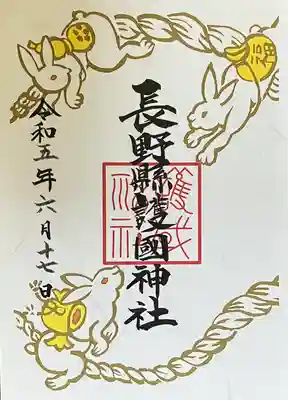 長野縣護國神社
令和五年六月十七日